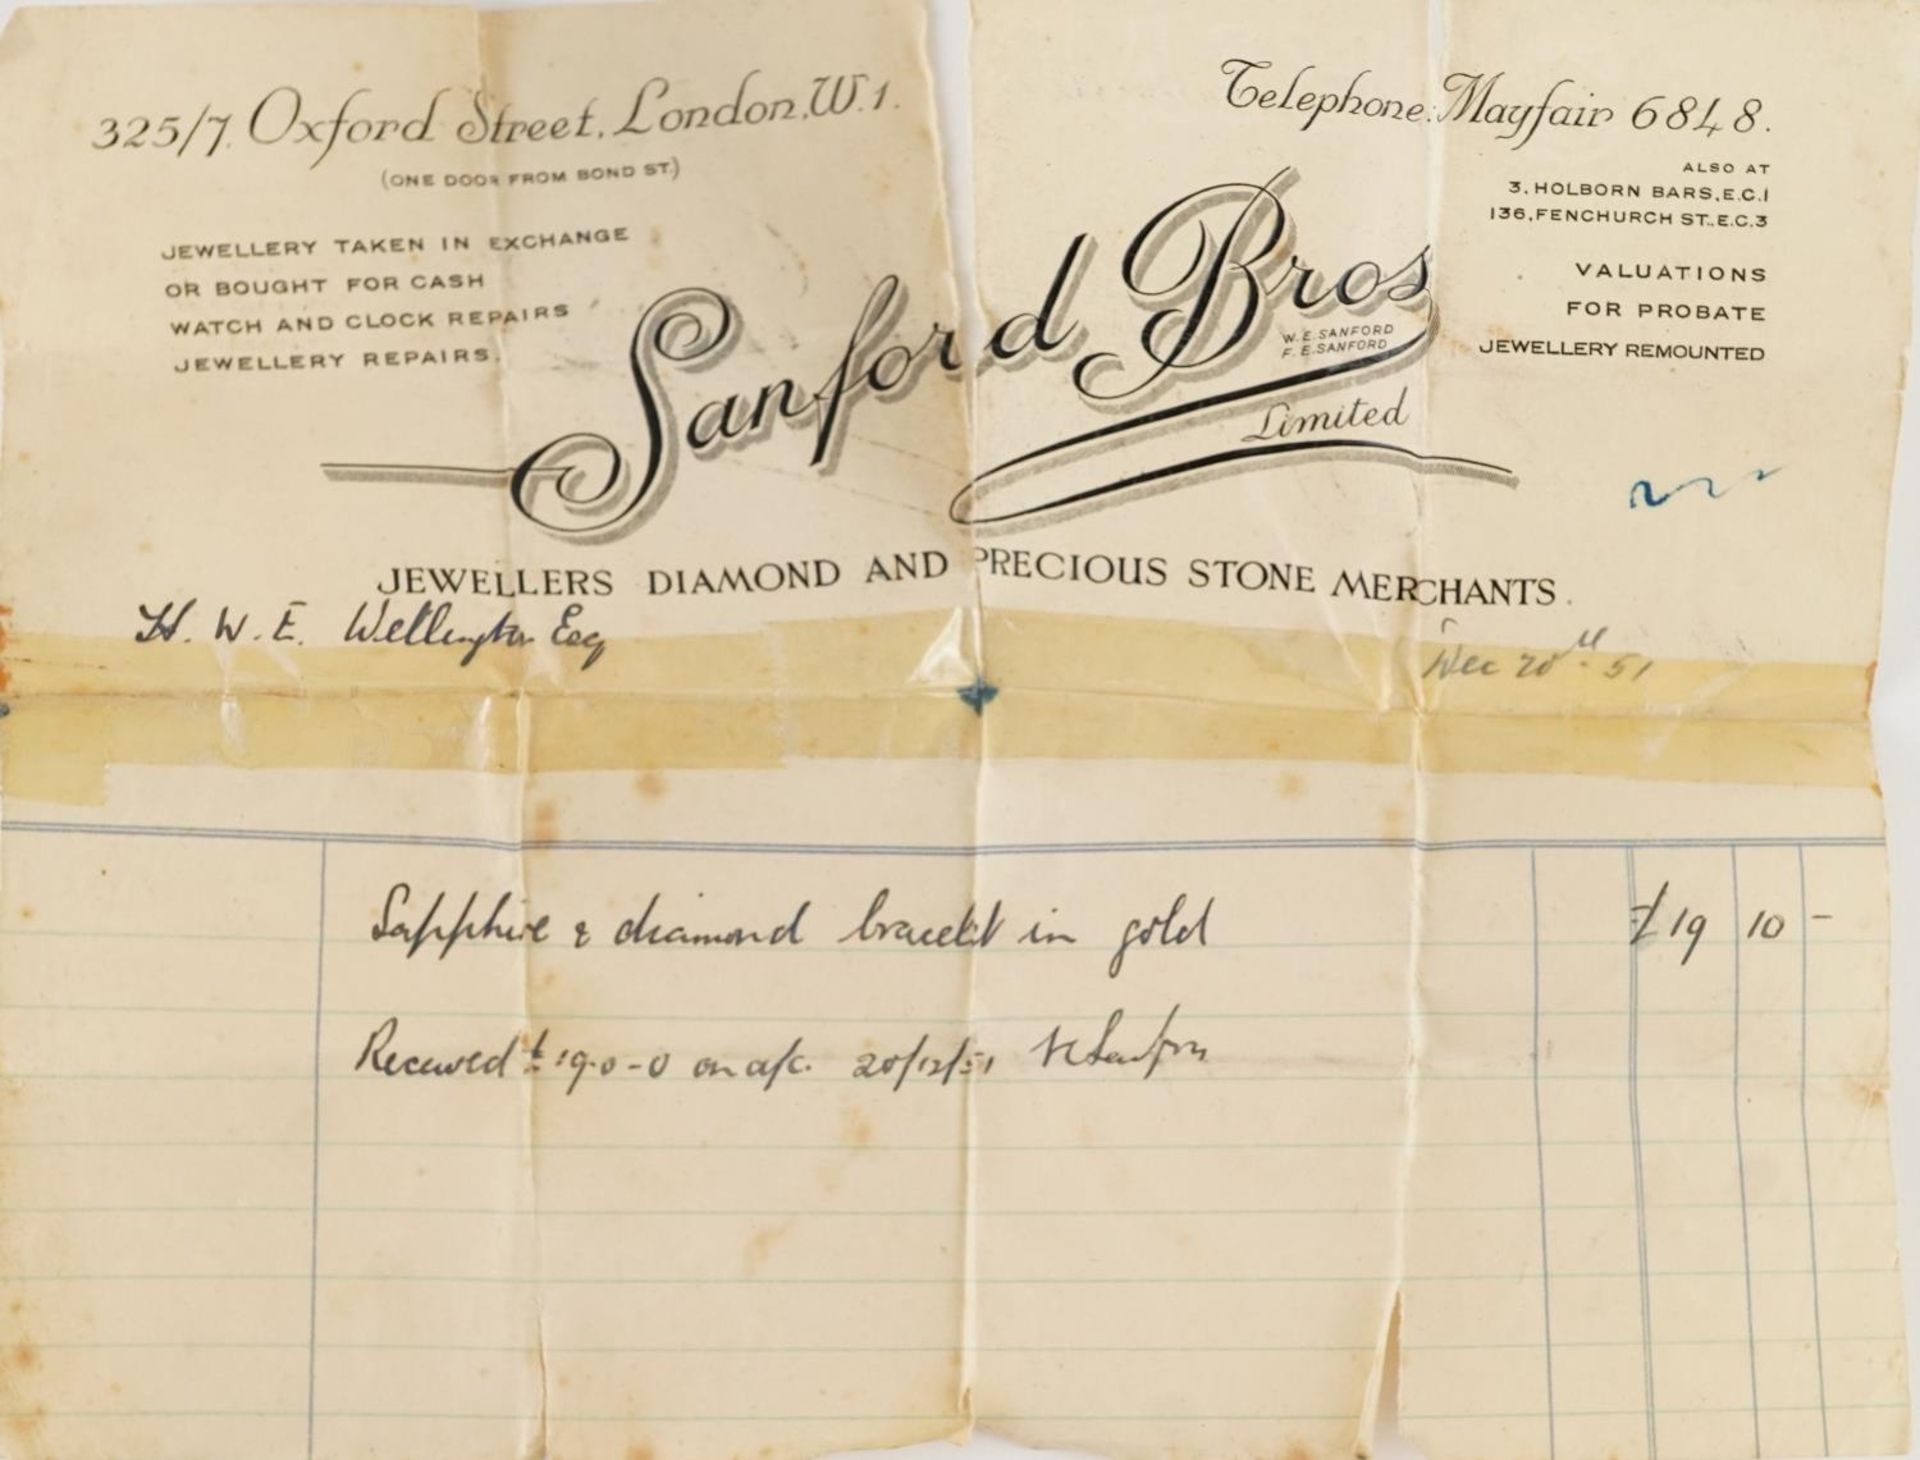 325/7, Oxford Street, London, W.1.
(ONE DOOR FROM BOND ST.)
JEWELLERY TAKEN IN EXCHANGE
OR BOUGHT FOR CASH
WATCH AND CLOCK REPAIRS
JEWELLERY REPAIRS.
Telephone: Mayfair 6848.
ALSO AT
3, HOLBORN BARS, E.C.1
136, FENCHURCH ST., E.C.3
VALUATIONS
FOR PROBATE
JEWELLERY REMOUNTED
Sanford Bros
W. E. SANFORD
F. E. SANFORD
Limited
JEWELLERS DIAMOND AND PRECIOUS STONE MERCHANTS.
H. W. E. Wellington Esq
Dec 20th 51
Sapphire & diamond bracelet in gold £19 10 -
Received £19-0-0 on a/c. 20/12/51